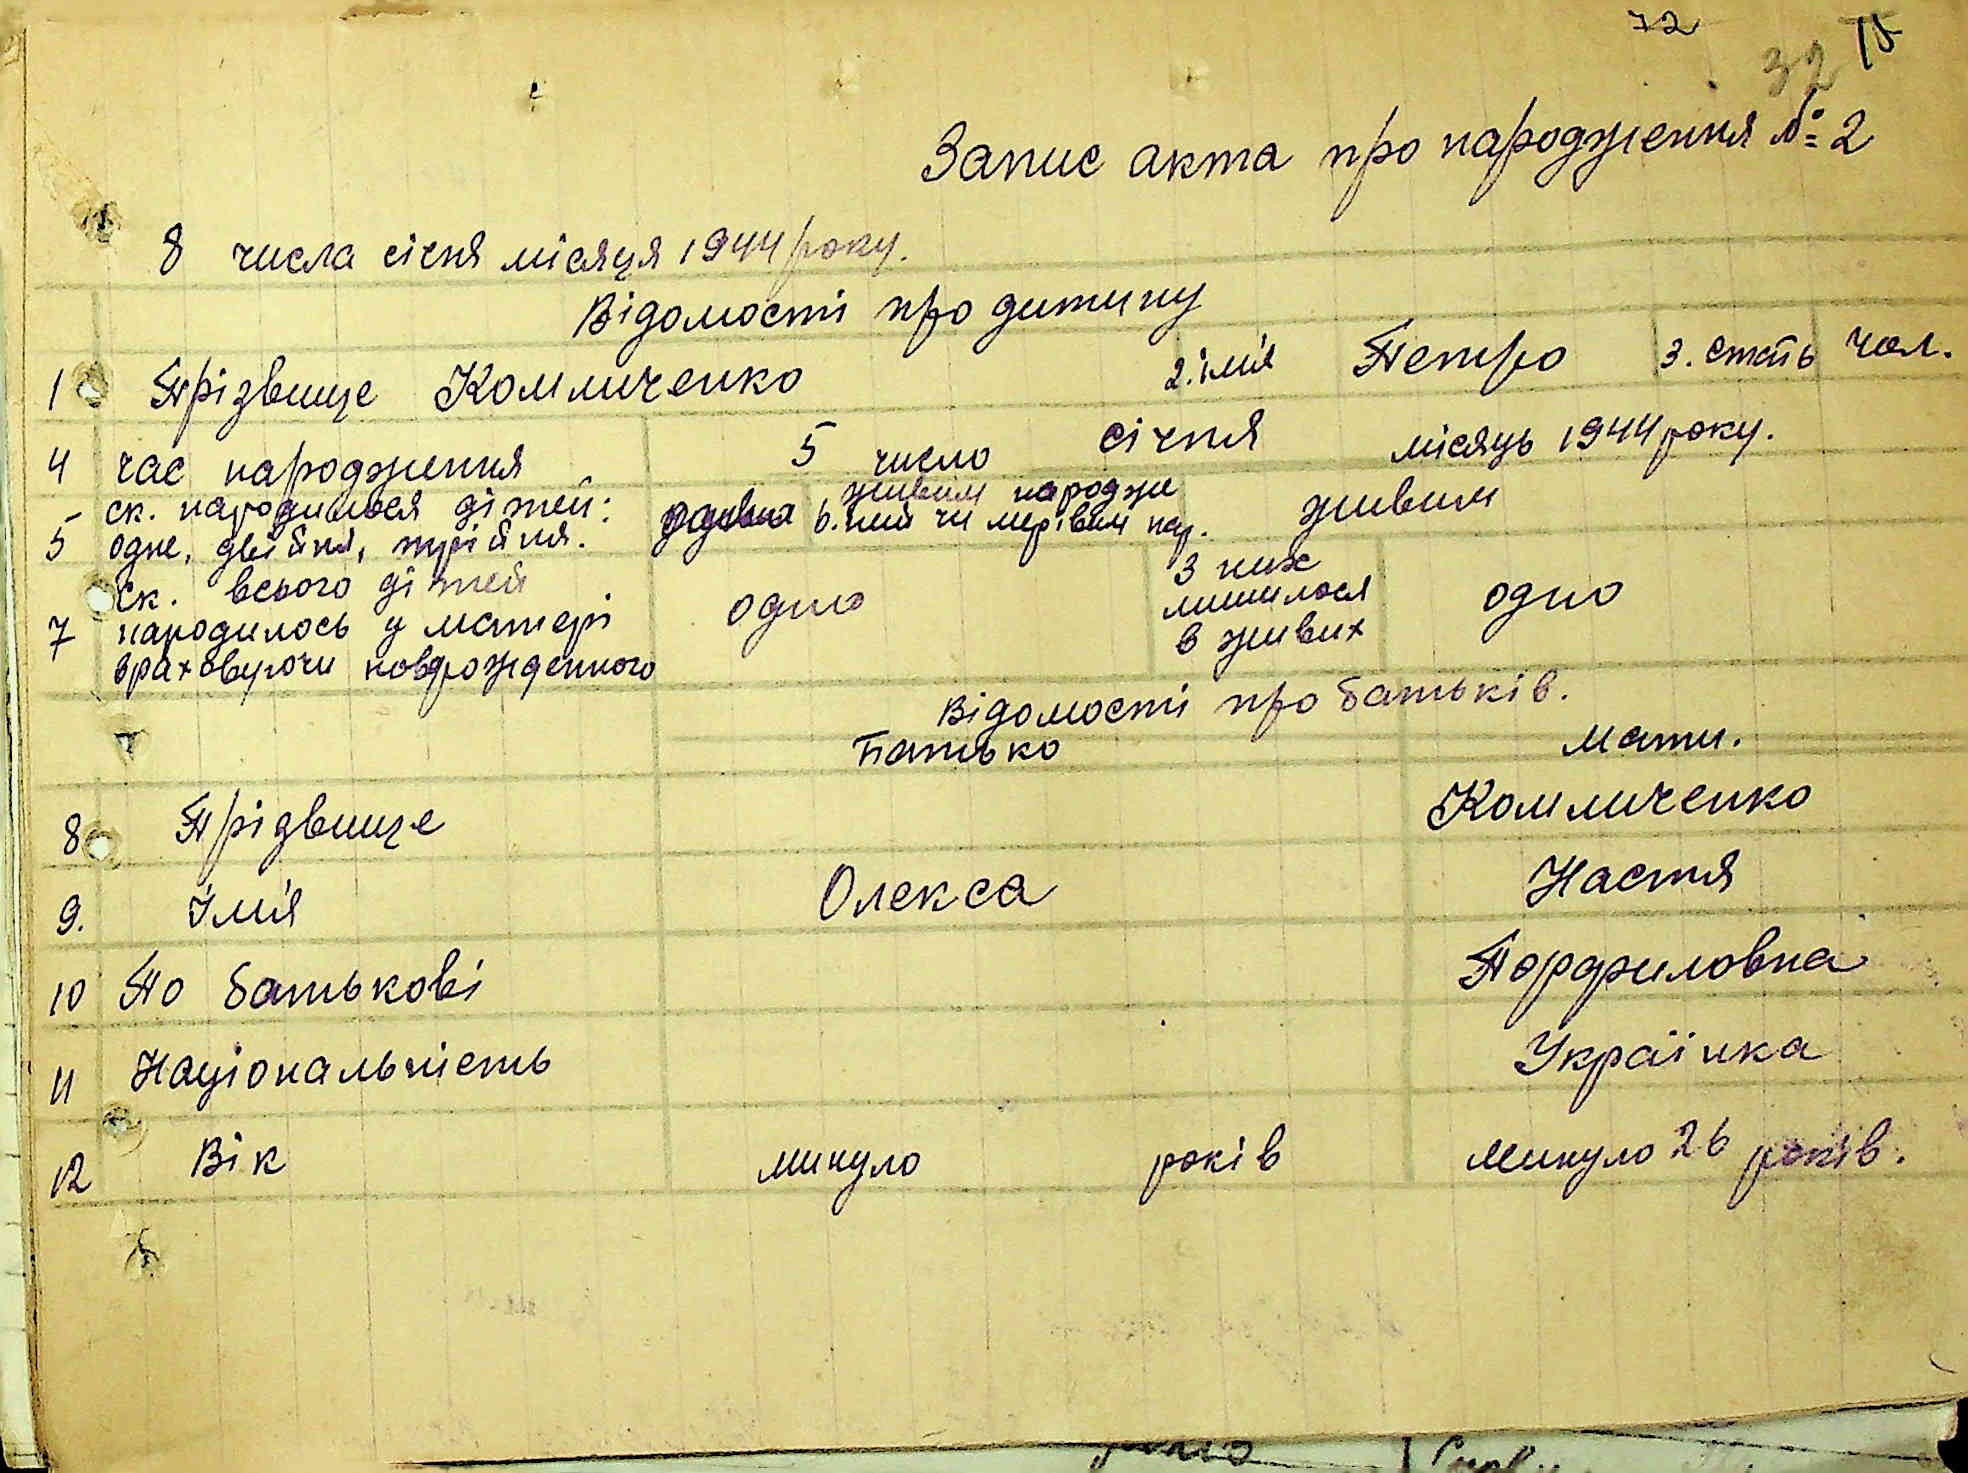 72
32 75
Запис акта про народження № 2
8 числа січня місяця 1944 року.
Відомості про дитину
1 Прізвище Комличенко 2. ім'я Петро 3. стать чол.
4 час народження 5 число січня місяць 1944 року.
5 ск. народилося дітей: одне, двійня, трійня. 6. живим народже ний чи мертвим нар. живим
7 ск. всього дітей народилось у матері враховуючи новорожденного одно З них лишилося в живих одно
Відомості про батьків.
Батько мати.
8 Прізвище Комличенко
9. Ім'я Олекса Настя
10 По батькові Порфиловна
11 Національність Українка
12 Вік минуло років минуло 26 років.